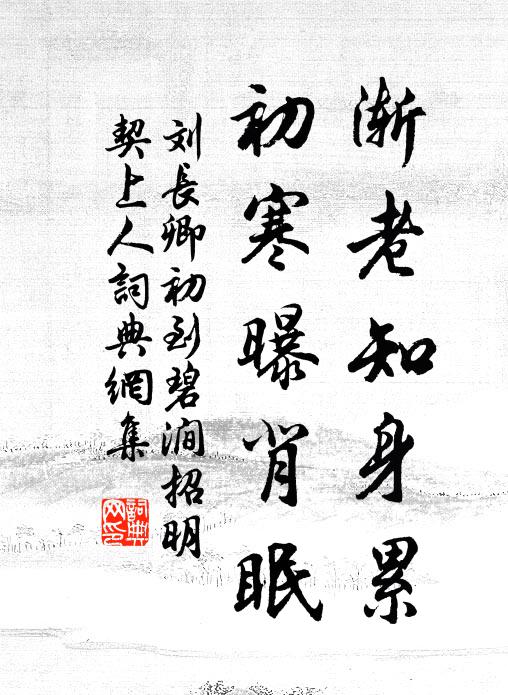 渐老知身累
初寒曝背眠
刘長卿初到碧涧招明
契上人詞典網集
詞典网印